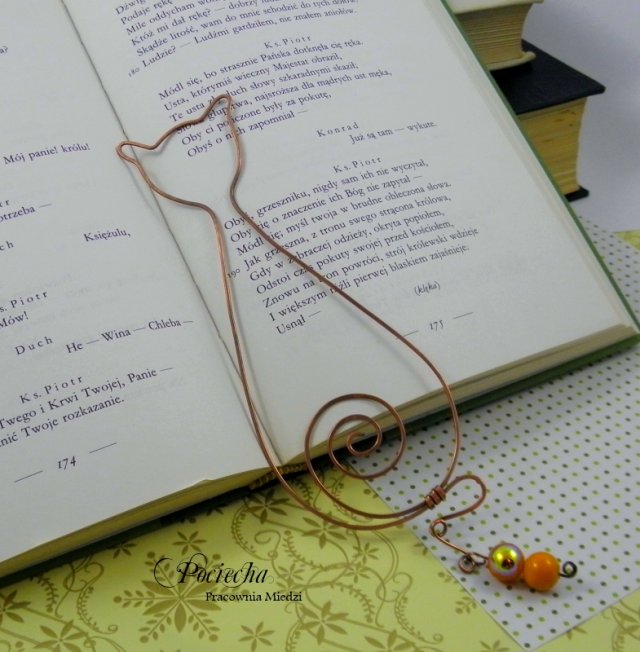 Mój panie! królu!
otrzeba —
Księżulu,
s. Piotr
Mów!
Duch
He — Wina — Chleba —
Ks. Piotr
Twego i Krwi Twojej, Panie —
nić Twoje rozkazanie.
174
Podaję rękę
Mile oddycham wo
Króż mi dał rękę? — dobrzy lu
Skądże litość, wam do mnie schodzić do tych dołów,
180 Ludzie? — Ludźmi gardziłem, nie znałem aniołów.
Ks. Piotr
Módl się, bo strasznie Pańska dotknęła cię ręka.
Usta, którymiś wieczny Majestat obraził,
Te usta zły duch słowy szkaradnymi skaził;
Słowa głupstwa, najsroższa dla mądrych ust męka,
Oby ci policzone były za pokutę,
Obyś o nich zapomniał —
Konrad
Już są tam — wykute.
Ks. Piotr
Obyś, grzeszniku, nigdy sam ich nie wyczytał,
Oby cię o znaczenie ich Bóg nie zapytał —
Módl się; myśl twoja w brudne obleczona słowa,
190 Jak grzeszna, z tronu swego strącona królowa,
Gdy w żebraczej odzieży, okryta popiołem,
Odstoi czas pokuty swojej przed kościołem,
Znowu na tron powróci, strój królewski wdzieje
I większym niźli pierwej blaskiem zajaśnieje.
Usnął —
(klęka)
175
Pociecha
Pracownia Miedzi